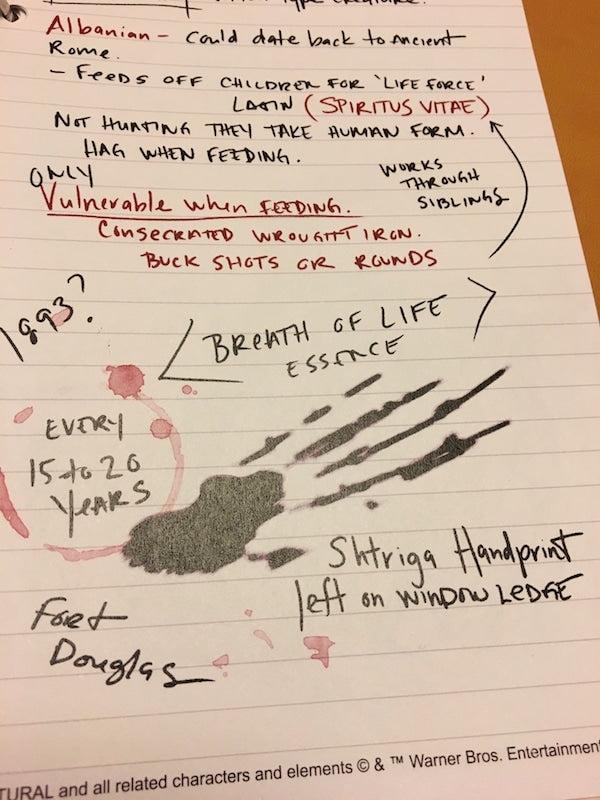 Type Creature.
Albanian - Could date back to Ancient
Rome.
- FEEDS OFF CHILDREN FOR 'LIFE FORCE'
LATIN (SPIRITUS VITAE)
NOT HUNTING THEY TAKE HUMAN FORM.
HAG WHEN FEEDING.
ONLY
Vulnerable when FEEDING.
CONSECRATED WROUGHT IRON.
BUCK SHOTS OR ROUNDS
WORKS
THROUGH
SIBLINGS
1893?
BREATH OF LIFE
ESSENCE
EVERY
15 to 20
YEARS
Shtriga Handprint
left on WINDOW LEDGE
Fort
Douglas
TURAL and all related characters and elements © & ™ Warner Bros. Entertainment